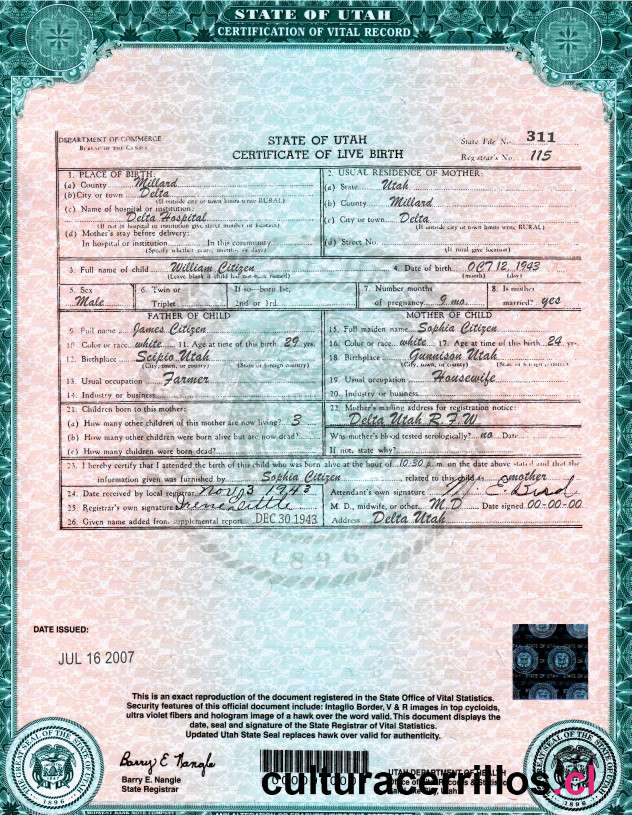 STATE OF UTAH
CERTIFICATION OF VITAL RECORD
DEPARTMENT OF COMMERCE
BUREAU OF THE CENSUS
STATE OF UTAH
CERTIFICATE OF LIVE BIRTH
State File No. 311
Registrar's No. 115
1. PLACE OF BIRTH:
(a) County Millard
(b) City or town Delta
(If outside city or town limits write RURAL)
(c) Name of hospital or institution:
Delta Hospital
(If not in hospital or institution give street number or location)
(d) Mother's stay before delivery:
In hospital or institution In this community
(Specify whether years, months or days)
2. USUAL RESIDENCE OF MOTHER:
(a) State Utah
(b) County Millard
(c) City or town Delta
(If outside city or town limits write, RURAL)
(d) Street No.
(If rural give location)
3. Full name of child William Citizen
4. Date of birth OCT 12, 1943
(month) (day)
5. Sex Male
6. Twin or Triplet
If so—born 1st, 2nd or 3rd
7. Number months of pregnancy 9 mo.
8. Is mother married? yes
FATHER OF CHILD
9. Full name James Citizen
10. Color or race white 11. Age at time of this birth 29 yrs.
12. Birthplace Scipio Utah
(City, town, or county) (State or foreign country)
13. Usual occupation Farmer
14. Industry or business
MOTHER OF CHILD
15. Full maiden name Sophia Citizen
16. Color or race white 17. Age at time of this birth 24 yrs.
18. Birthplace Gunnison Utah
(City, town, or county) (State or foreign country)
19. Usual occupation Housewife
20. Industry or business
21. Children born to this mother:
(a) How many other children of this mother are now living? 3
(b) How many other children were born alive but are now dead?
(c) How many children were born dead?
22. Mother's mailing address for registration notice:
Delta Utah R.F.W.
Was mother's blood tested serologically? no Date
If not, state why?
23. I hereby certify that I attended the birth of this child who was born alive at the hour of 10:30 p. m. on the date above stated and that the
information given was furnished by Sophia Citizen related to this child as mother
24. Date received by local registrar Nov 3 1943
25. Registrar's own signature
26. Given name added from supplemental report DEC 30 1943
Attendant's own signature
M. D., midwife, or other M. D. Date signed 00-00-00
Address Delta Utah
1896
DATE ISSUED:
JUL 16 2007
This is an exact reproduction of the document registered in the State Office of Vital Statistics.
Security features of this official document include: Intaglio Border, V & R images in top cycloids,
ultra violet fibers and hologram image of a hawk over the word valid. This document displays the
date, seal and signature of the State Registrar of Vital Statistics.
Updated Utah State Seal replaces hawk over valid for authenticity.
THE GREAT SEAL OF THE STATE OF UTAH
1896
Barry E Nangle
Barry E. Nangle
State Registrar
UTAH DEPARTMENT OF HEALTH
Office of Vital Records & Statistics
culturacerrillos.cl
THE GREAT SEAL OF THE STATE OF UTAH
1896